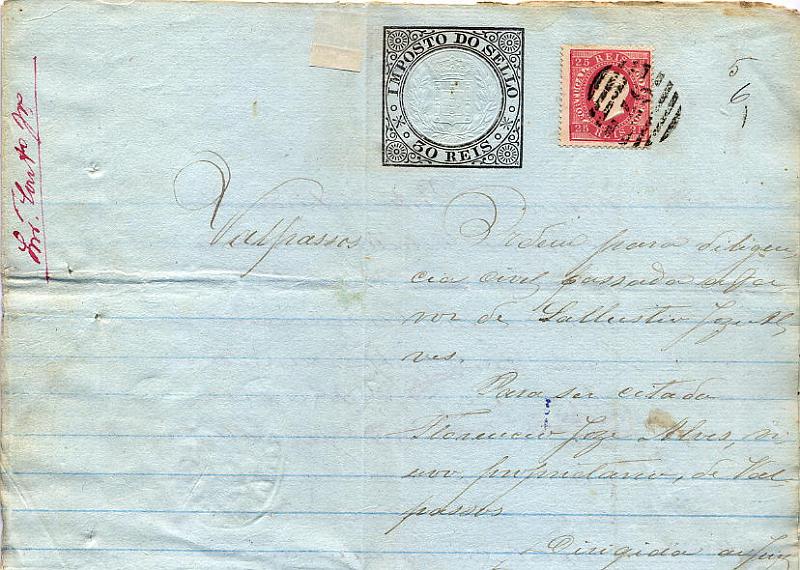 IMPOSTO DO SELLO
30 REIS
25 REIS
PORTUGAL
25 REIS
5
6
1
Valpassos
Ordem para diligen,
cia civel passada a fa
vor de Sallustio Joze Al,
ves.
Para ser citado
Florencio Joze Alves, vi
uvo, proprietario, de Val,
passos
Dirigida ao Juiz